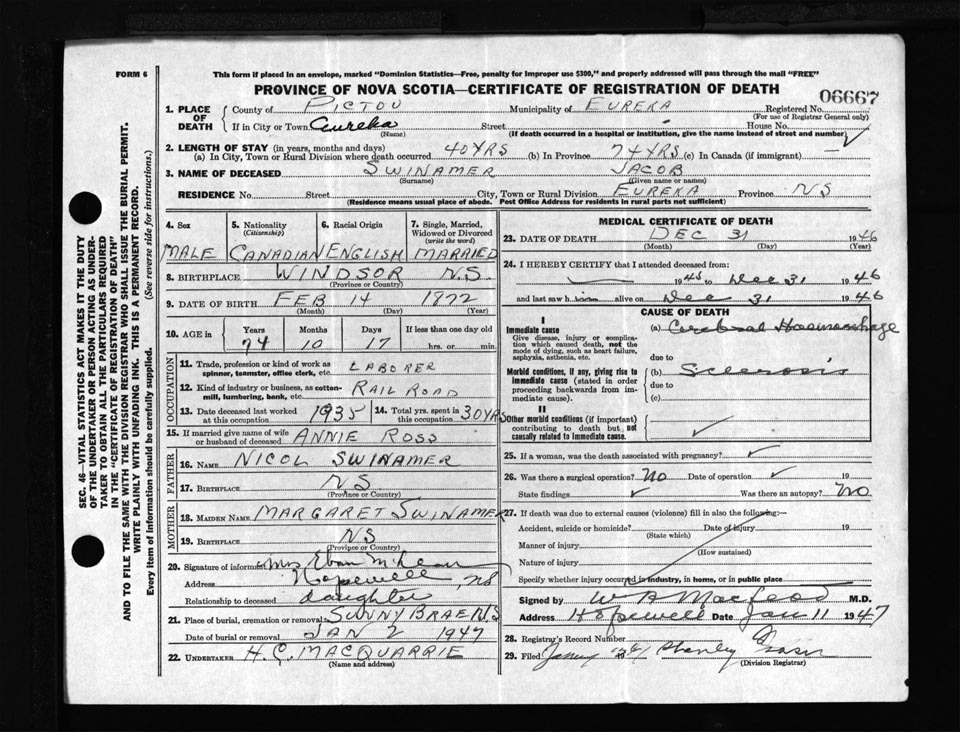 FORM 6
This form if placed in an envelope, marked "Dominion Statistics—Free, penalty for improper use $300," and properly addressed will pass through the mail "FREE"
PROVINCE OF NOVA SCOTIA—CERTIFICATE OF REGISTRATION OF DEATH
06667
1. PLACE OF DEATH
County of PICTOU Municipality of EUREKA Registered No.
(For use of Registrar General only)
If in City or Town Eureka Street House No.
(Name) (If death occurred in a hospital or institution, give the name instead of street and number)
2. LENGTH OF STAY (in years, months and days)
(a) In City, Town or Rural Division where death occurred 40 YRS (b) In Province 74 YRS (c) In Canada (if immigrant) —
3. NAME OF DECEASED SWINAMER JACOB
(Surname) (Given name or names)
RESIDENCE No. Street City, Town or Rural Division EUREKA Province NS
(Residence means usual place of abode. Post Office Address for residents in rural parts not sufficient)
4. Sex 5. Nationality 6. Racial Origin 7. Single, Married, Widowed or Divorced
(Citizenship) (write the word)
MALE CANADIAN ENGLISH MARRIED
8. BIRTHPLACE WINDSOR N.S.
(Province or Country)
9. DATE OF BIRTH FEB 14 1872
(Month) (Day) (Year)
10. AGE in Years Months Days If less than one day old
74 10 17 hrs. or min.
OCCUPATION
11. Trade, profession or kind of work as spinner, teamster, office clerk, etc. LABORER
12. Kind of industry or business, as cotton-mill, lumbering, bank, etc. RAIL ROAD
13. Date deceased last worked at this occupation 1935 14. Total yrs. spent in this occupation 30 YRS
15. If married give name of wife or husband of deceased ANNIE ROSS
FATHER
16. NAME NICOL SWINAMER
17. BIRTHPLACE NS
(Province or Country)
MOTHER
18. MAIDEN NAME MARGARET SWINAMER
19. BIRTHPLACE NS
(Province or Country)
20. Signature of informant Mrs. Eban McLean
Address Hopewell, NS
Relationship to deceased daughter
21. Place of burial, cremation or removal SUNNY BRAE N.S.
Date of burial or removal JAN 2 1947
22. UNDERTAKER H.C. MACQUARRIE
(Name and address)
MEDICAL CERTIFICATE OF DEATH
23. DATE OF DEATH DEC 31 1946
(Month) (Day) (Year)
24. I HEREBY CERTIFY that I attended deceased from:
1945 to Dec 31 1946
and last saw him alive on Dec 31 1946
CAUSE OF DEATH
I
Immediate cause (a) Cerebral Haemorrhage
Give disease, injury or complication which caused death, not the mode of dying, such as heart failure, asphyxia, asthenia, etc.
due to
Morbid conditions, if any, giving rise to immediate cause (stated in order proceeding backwards from immediate cause).
(b) Sclerosis
due to
(c)
II
Other morbid conditions (if important) contributing to death but not causally related to immediate cause.
25. If a woman, was the death associated with pregnancy?
26. Was there a surgical operation? No Date of operation 19
State findings Was there an autopsy? No
27. If death was due to external causes (violence) fill in also the following:—
Accident, suicide or homicide? Date of injury 19
(State which)
Manner of injury
(How sustained)
Nature of injury
Specify whether injury occurred in industry, in home, or in public place
Signed by W A MacLeod M.D.
Address Hopewell Date Jan 11 1947
28. Registrar's Record Number
29. Filed Stanley Fraser
(Division Registrar)
SEC. 46—VITAL STATISTICS ACT MAKES IT THE DUTY
OF THE UNDERTAKER OR PERSON ACTING AS UNDER-
TAKER TO OBTAIN ALL THE PARTICULARS REQUIRED
IN THE "CERTIFICATE OF REGISTRATION OF DEATH"
AND TO FILE THE SAME WITH THE DIVISION REGISTRAR WHO SHALL ISSUE THE BURIAL PERMIT.
WRITE PLAINLY WITH UNFADING INK. THIS IS A PERMANENT RECORD.
Every item of information should be carefully supplied. (See reverse side for instructions.)